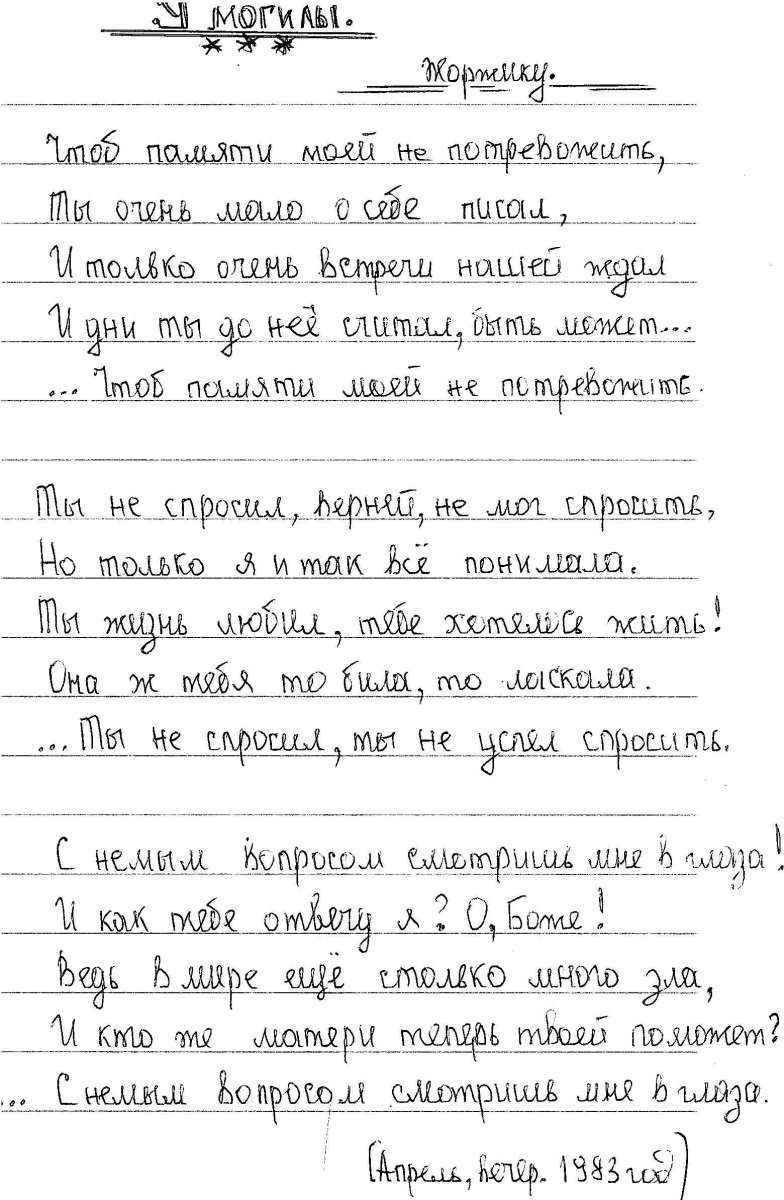 У МОГИЛЫ.
* * *
Жоржику.
Чтоб памяти моей не потревожить,
Ты очень мало о себе писал,
И только очень встречи нашей ждал
И дни ты до неё считал, быть может...
... Чтоб памяти моей не потревожить.
Ты не спросил, верней, не мог спросить,
Но только я и так всё понимала.
Ты жизнь любил, тебе хотелось жить!
Она ж тебя то била, то ласкала.
... Ты не спросил, ты не успел спросить.
С немым вопросом смотришь мне в глаза!
И как тебе отвечу я? О, Боже!
Ведь в мире ещё столько много зла,
И кто же матери теперь твоей поможет?
... С немым вопросом смотришь мне в глаза.
(Апрель, вечер. 1983 год)